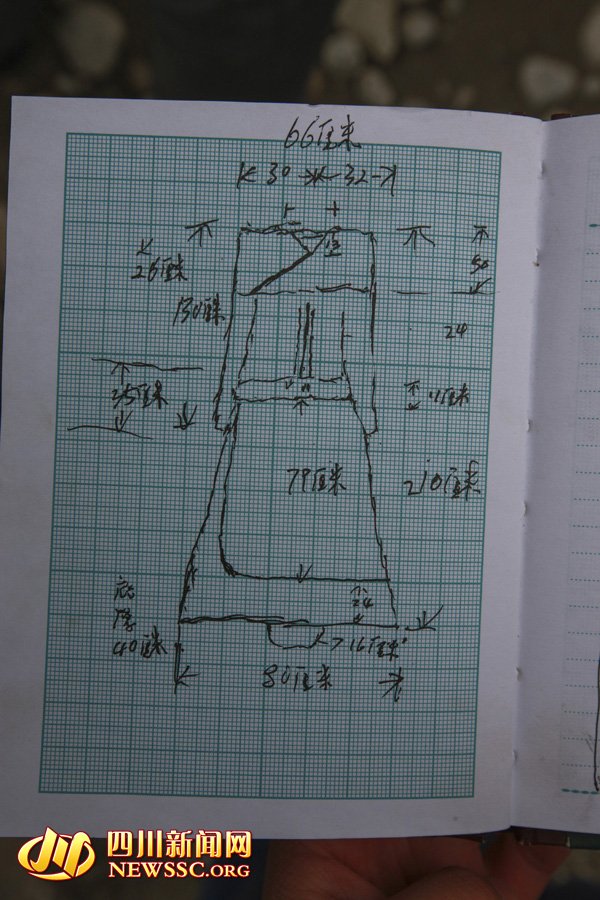 66厘米
30 32
26厘米
30
130厘米
24
35厘米
11厘米
79厘米
210厘米
24
底
厚
40厘米
16厘米
80厘米
四川新闻网
NEWSSC.ORG